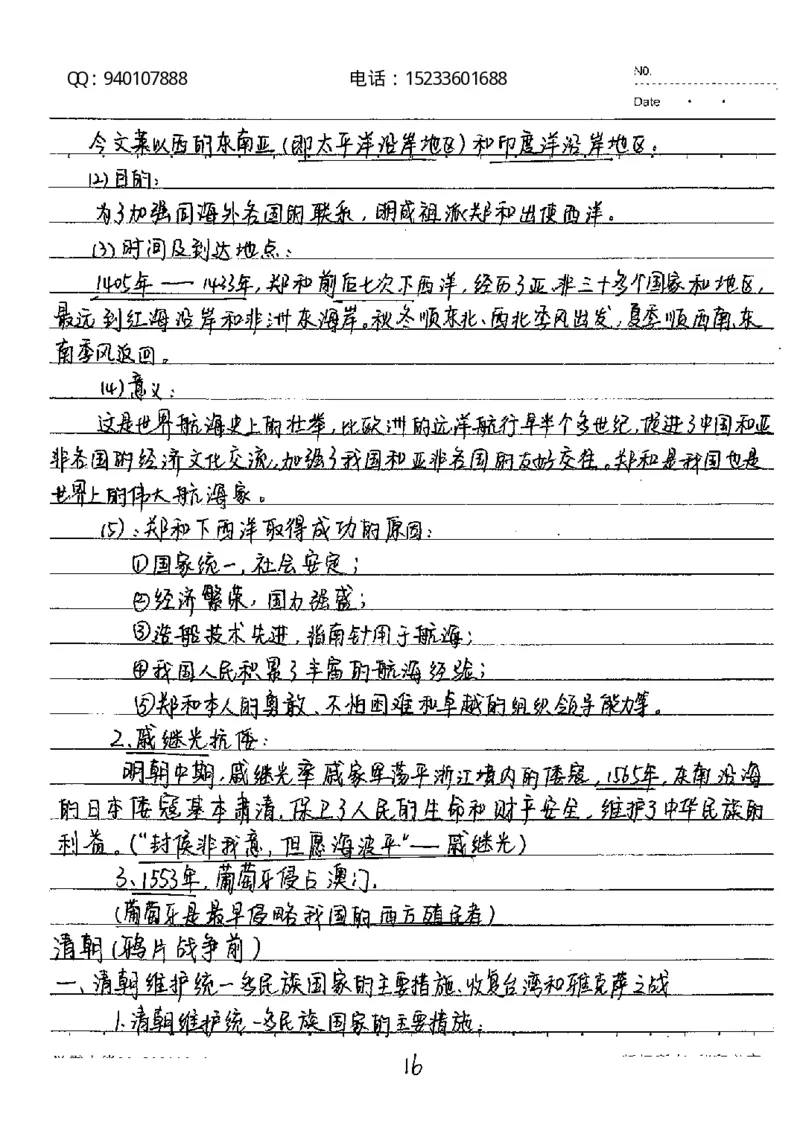 QQ：940107888 电话：15233601688 NO.
Date
今文莱以西的东南亚(即太平洋沿岸地区)和印度洋沿岸地区；
(2)目的：
为了加强同海外各国的联系，明成祖派郑和出使西洋。
(3)时间及到达地点：
1405年——1433年，郑和前后七次下西洋，经历了亚、非三十多个国家和地区，
最远到红海沿岸和非洲东海岸。秋冬顺东北、西北季风出发，夏季顺西南、东
南季风返回。
(4)意义：
这是世界航海史上的壮举，比欧洲的远洋航行早半个多世纪，促进了中国和亚
非各国的经济文化交流，加强了我国和亚非各国的友好交往。郑和是我国也是
世界上的伟大航海家。
(5)：郑和下西洋取得成功的原因：
①国家统一，社会安定；
②经济繁荣，国力强盛；
③造船技术先进，指南针用于航海；
④我国人民积累了丰富的航海经验；
⑤郑和本人的勇敢、不怕困难和卓越的组织领导能力等。
2、戚继光抗倭：
明朝中期，戚继光率戚家军荡平浙江境内的倭寇，1565年，东南沿海
的日本倭寇基本肃清，保卫了人民的生命和财产安全，维护了中华民族的
利益。(“封侯非我意，但愿海波平”——戚继光)
3、1553年，葡萄牙侵占澳门，
(葡萄牙是最早侵略我国的西方殖民者)
清朝(鸦片战争前)
一、清朝维护统一多民族国家的主要措施、收复台湾和雅克萨之战
1、清朝维护统一多民族国家的主要措施：
16